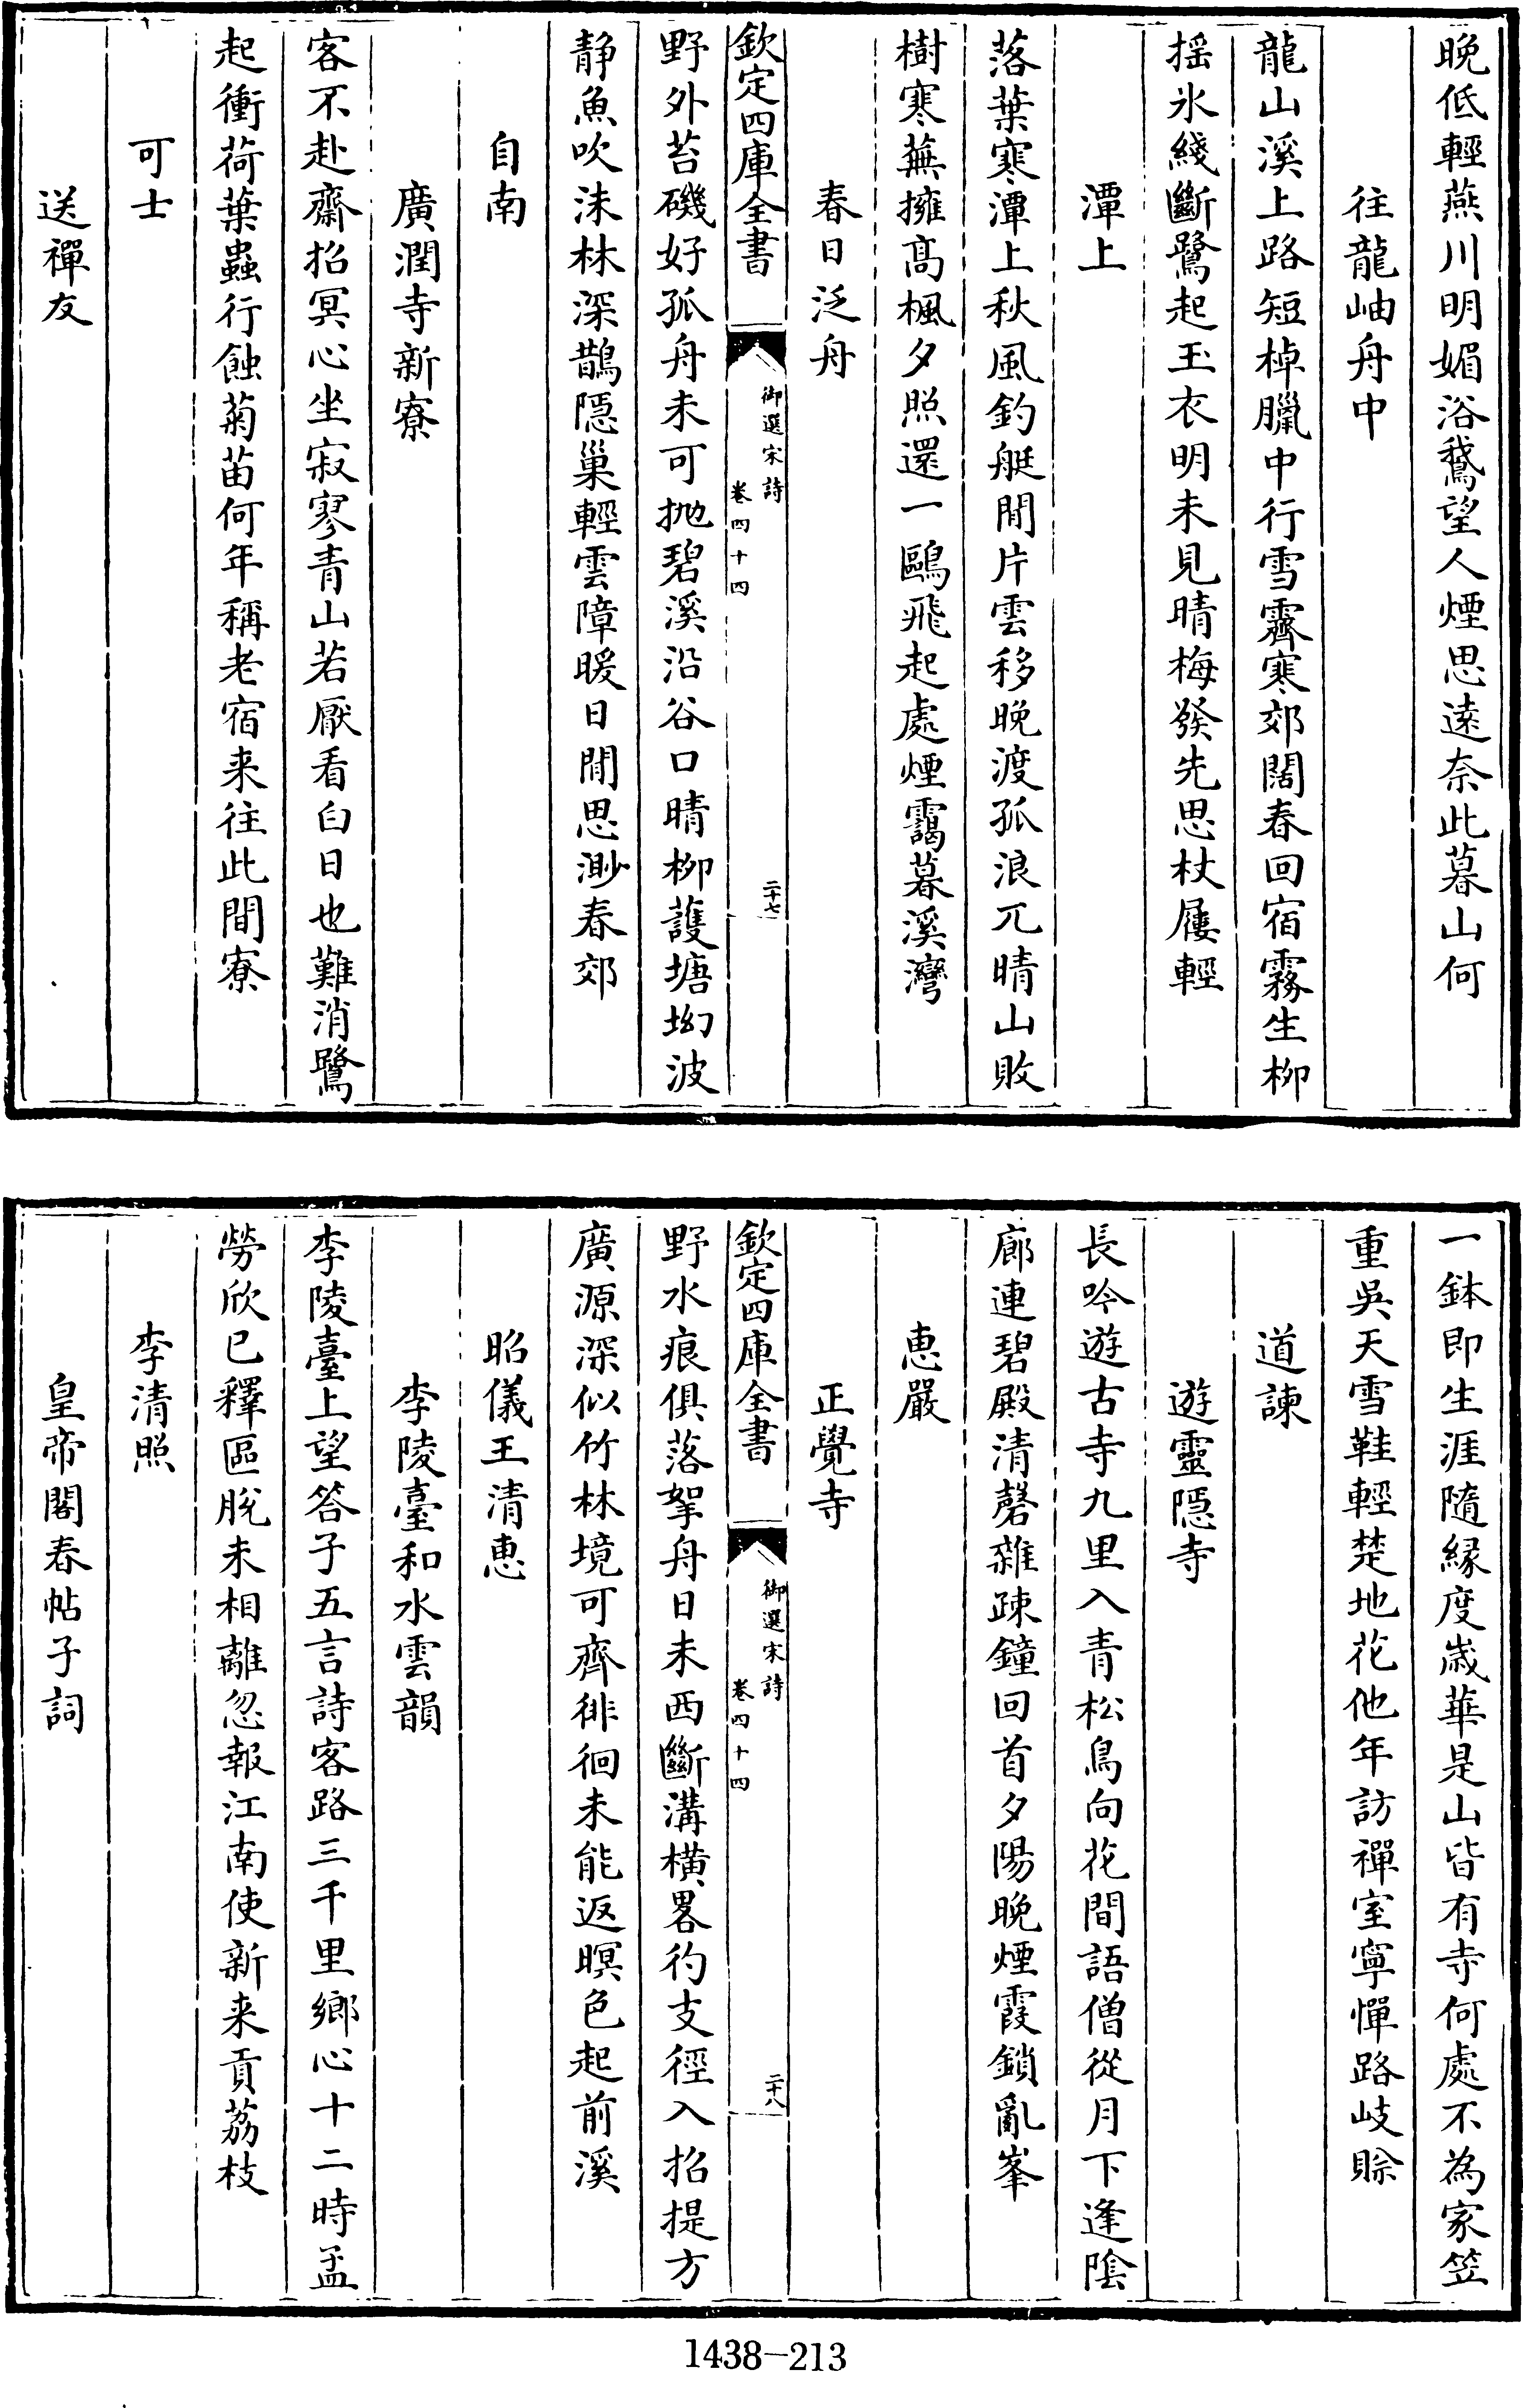 晚低輕燕川明媚浴鵞望人煙思逺奈此暮山何
往龍岫舟中
龍山溪上路短棹臘中行雪霽寒郊闊春回宿霧生柳
揺氷綫斷鷺起玉衣明未見晴梅發先思杖屨輕
潭上
落葉寒潭上秋風釣艇閒片雲移晚渡孤浪兀晴山敗
樹寒蕪擁髙楓夕照還一鷗飛起處煙靄暮溪灣
春日泛舟
欽定四庫全書
御選宋詩
卷四十四
二十七
野外苔磯好孤舟未可抛碧溪沿谷口晴柳䕶塘坳波
静魚吹沫林深鵲隠巢輕雲障暖日閒思渺春郊
自南
廣潤寺新寮
客不赴齋招冥心坐寂寥青山若厭看白日也難消鷺
起衝荷葉蟲行蝕菊苗何年稱老宿来往此間寮
可士
送禪友
一鉢即生涯隨緣度嵗華是山皆有寺何處不為家笠
重吳天雪鞋輕楚地花他年訪禪室寧憚路岐賒
道諫
遊靈隠寺
長吟遊古寺九里入青松鳥向花間語僧從月下逢陰
廊連碧殿清磬雜疎鐘回首夕陽晚煙霞鎖亂峯
惠嚴
正覺寺
欽定四庫全書
御選宋詩
卷四十四
二十八
野水痕俱落挐舟日未西斷溝横畧彴支徑入招提方
廣源深似竹林境可齊徘徊未能返暝色起前溪
昭儀王清惠
李陵臺和水雲韻
李陵臺上望答子五言詩客路三千里鄉心十二時孟
勞欣已釋區脫未相離忽報江南使新来貢荔枝
李清照
皇帝閣春帖子詞
1438-213